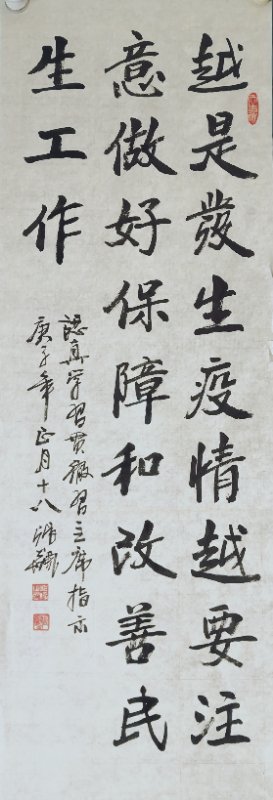 越是發生疫情越要注
意做好保障和改善民
生工作
認真学習貫徹習主席指示
庚子年正月十八